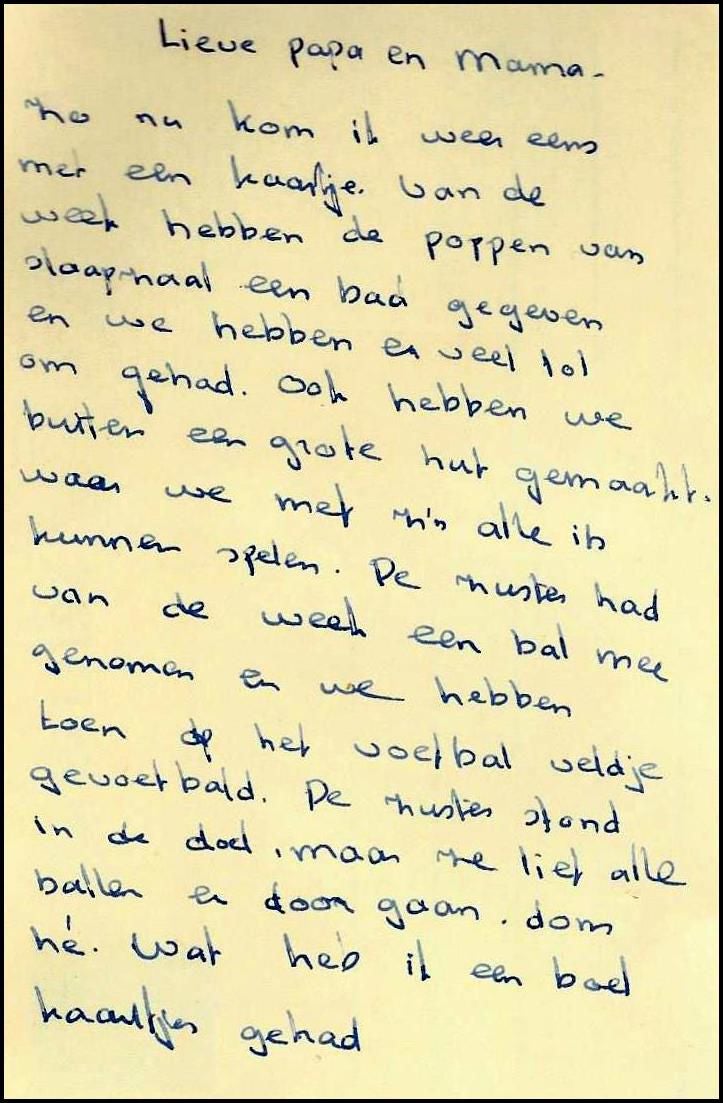 Lieve papa en Mama.
zo nu kom ik weer eens
met een kaartje. Van de
week hebben de poppen van
slaapzaal een bad gegeven
en we hebben er veel lol
om gehad. Ook hebben we
buiten een grote hut gemaakt.
waar we met z'n alle in
kunnen spelen. De zuster had
van de week een bal mee
genomen en we hebben
toen op het voetbal veldje
gevoetbald. De zuster stond
in de doel, maar ze liet alle
ballen er door gaan. dom
hé. Wat heb ik een boel
kaartjes gehad